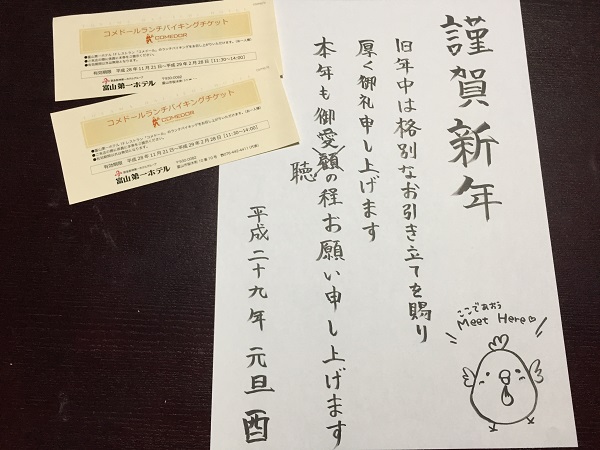 コメドールランチバイキングチケット
COMEDOR
有効期間 平成28年11月21日～平成29年2月28日 [11:30～14:00]
富山第一ホテル
コメドールランチバイキングチケット
COMEDOR
有効期間 平成28年11月21日～平成29年2月28日 [11:30～14:00]
富山第一ホテル
謹賀新年
旧年中は格別なお引き立てを賜り
厚く御礼申し上げます
本年も御愛顧の程お願い申し上げます
聴
平成二十九年 元旦 酉
ここであおう
Meet Here♡